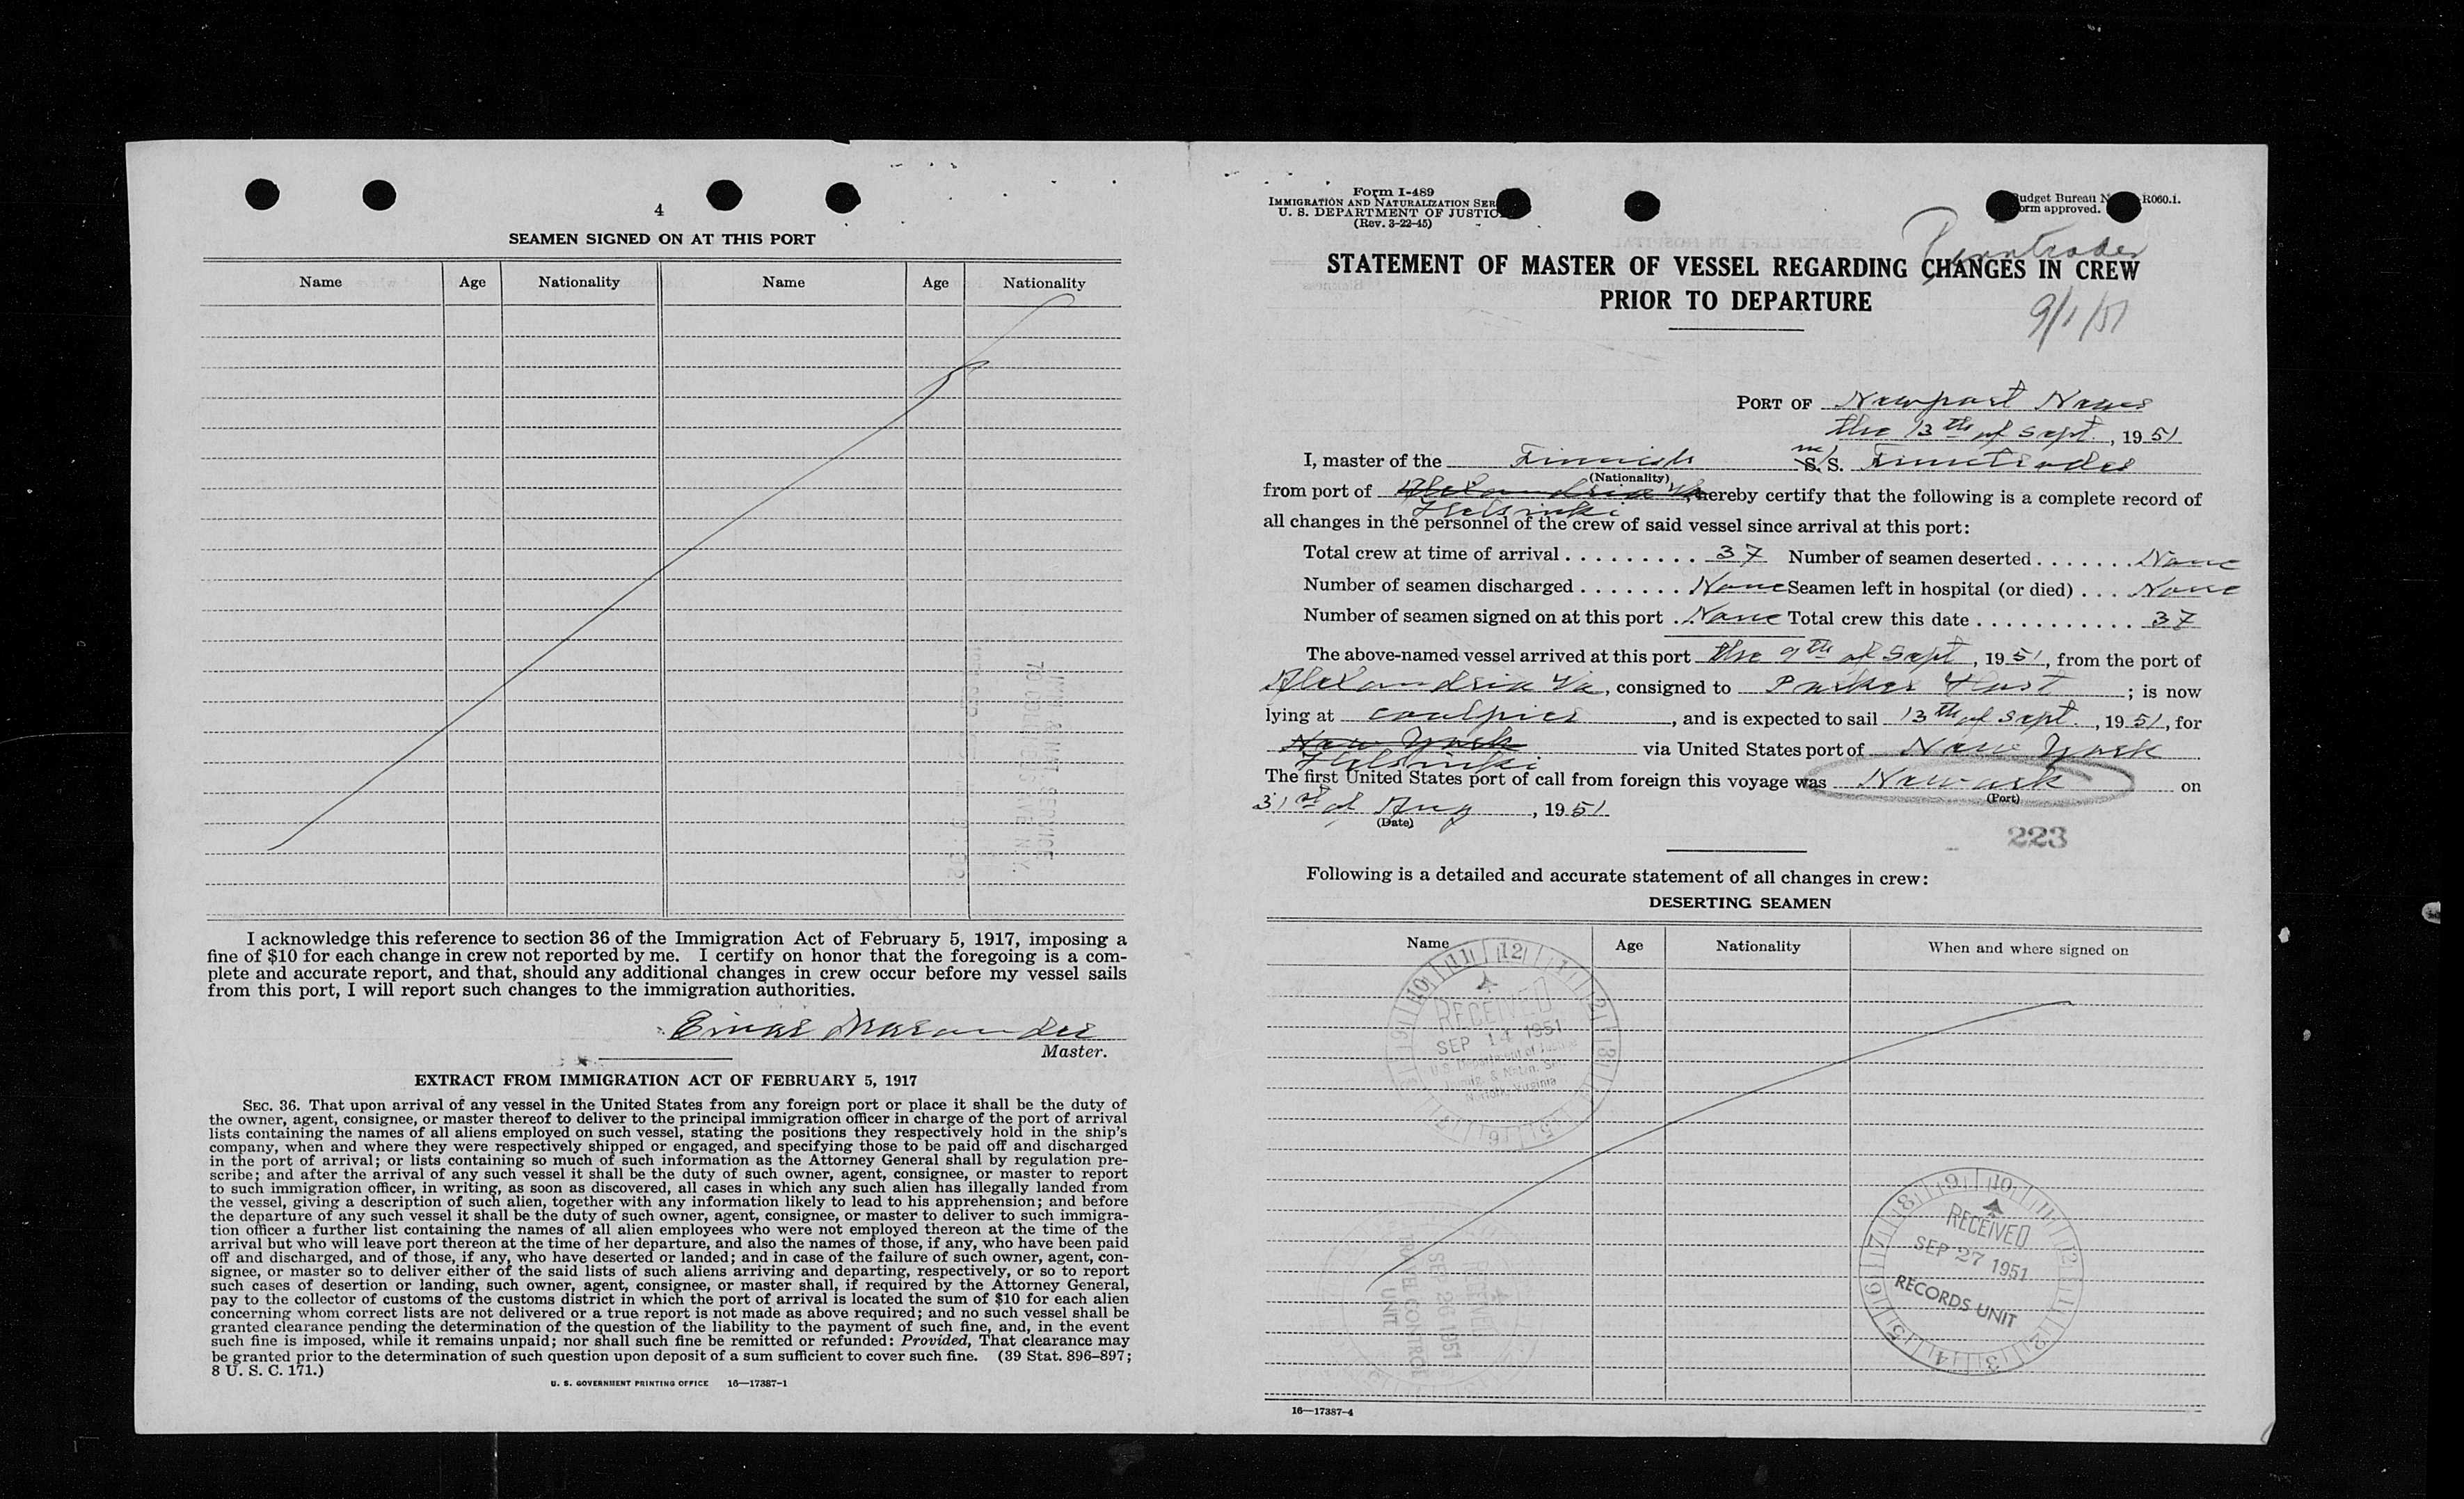 4
SEAMEN SIGNED ON AT THIS PORT
Name Age Nationality Name Age Nationality
I acknowledge this reference to section 36 of the Immigration Act of February 5, 1917, imposing a
fine of $10 for each change in crew not reported by me. I certify on honor that the foregoing is a com-
plete and accurate report, and that, should any additional changes in crew occur before my vessel sails
from this port, I will report such changes to the immigration authorities.
Master.
EXTRACT FROM IMMIGRATION ACT OF FEBRUARY 5, 1917
SEC. 36. That upon arrival of any vessel in the United States from any foreign port or place it shall be the duty of
the owner, agent, consignee, or master thereof to deliver to the principal immigration officer in charge of the port of arrival
lists containing the names of all aliens employed on such vessel, stating the positions they respectively hold in the ship's
company, when and where they were respectively shipped or engaged, and specifying those to be paid off and discharged
in the port of arrival; or lists containing so much of such information as the Attorney General shall by regulation pre-
scribe; and after the arrival of any such vessel it shall be the duty of such owner, agent, consignee, or master to report
to such immigration officer, in writing, as soon as discovered, all cases in which any such alien has illegally landed from
the vessel, giving a description of such alien, together with any information likely to lead to his apprehension; and before
the departure of any such vessel it shall be the duty of such owner, agent, consignee, or master to deliver to such immigra-
tion officer a further list containing the names of all alien employees who were not employed thereon at the time of the
arrival but who will leave port thereon at the time of her departure, and also the names of those, if any, who have been paid
off and discharged, and of those, if any, who have deserted or landed; and in case of the failure of such owner, agent, con-
signee, or master so to deliver either of the said lists of such aliens arriving and departing, respectively, or so to report
such cases of desertion or landing, such owner, agent, consignee, or master shall, if required by the Attorney General,
pay to the collector of customs of the customs district in which the port of arrival is located the sum of $10 for each alien
concerning whom correct lists are not delivered or a true report is not made as above required; and no such vessel shall be
granted clearance pending the determination of the question of the liability to the payment of such fine, and, in the event
such fine is imposed, while it remains unpaid; nor shall such fine be remitted or refunded: Provided, That clearance may
be granted prior to the determination of such question upon deposit of a sum sufficient to cover such fine. (39 Stat. 896–897;
8 U. S. C. 171.)
U. S. GOVERNMENT PRINTING OFFICE 16—17387-1
Form I-489
IMMIGRATION AND NATURALIZATION SER
U. S. DEPARTMENT OF JUSTIC
(Rev. 3-22-45)
udget Bureau N R060.1.
orm approved.
STATEMENT OF MASTER OF VESSEL REGARDING CHANGES IN CREW
PRIOR TO DEPARTURE
9/1/51
PORT OF Newport News
the 13th of Sept., 1951
I, master of the Finnish m/S. Finntrader
(Nationality)
from port of Alexandria Va hereby certify that the following is a complete record of
Helsinki
all changes in the personnel of the crew of said vessel since arrival at this port:
Total crew at time of arrival . . . . . . . . . . 37 Number of seamen deserted . . . . . . . None
Number of seamen discharged . . . . . . . None Seamen left in hospital (or died) . . . None
Number of seamen signed on at this port . None Total crew this date . . . . . . . . . . . . 37
The above-named vessel arrived at this port the 9th of Sept, 1951, from the port of
Alexandria Va, consigned to Parker Host ; is now
lying at coalpier , and is expected to sail 13th of Sept., 1951, for
New York via United States port of New York
Helsinki
The first United States port of call from foreign this voyage was Newark on
(Port)
31st of Aug , 1951.
(Date)
223
Following is a detailed and accurate statement of all changes in crew:
DESERTING SEAMEN
Name Age Nationality When and where signed on
RECEIVED
SEP 14 1951
U.S. Department of Justice
Immig. & Natzn. Ser.
Norfolk, Virginia
RECEIVED
SEP 27 1951
RECORDS UNIT
RECEIVED
SEP 26 1951
TRAVEL CONTROL
UNIT
16—17387-4